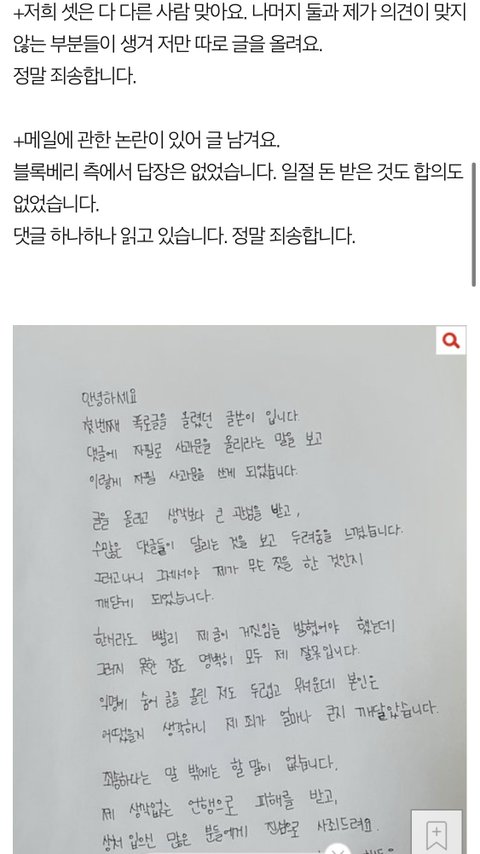 +저희 셋은 다 다른 사람 맞아요. 나머지 둘과 제가 의견이 맞지
않는 부분들이 생겨 저만 따로 글을 올려요.
정말 죄송합니다.
+메일에 관한 논란이 있어 글 남겨요.
블록베리 측에서 답장은 없었습니다. 일절 돈 받은 것도 합의도
없었습니다.
댓글 하나하나 읽고 있습니다. 정말 죄송합니다.
안녕하세요
첫번째 폭로글을 올렸던 글쓴이 입니다.
댓글에 자필로 사과문을 올리라는 말을 보고
이렇게 자필 사과문을 쓰게 되었습니다.
글을 올리고 생각보다 큰 관심을 받고,
수많은 댓글들이 달리는 것을 보고 두려움을 느꼈습니다.
그러고나니 그제서야 제가 무슨 짓을 한 것인지
깨닫게 되었습니다.
한시라도 빨리 제 글이 거짓임을 밝혔어야 했는데
그러지 못한 점도 명백히 모두 제 잘못입니다.
익명에 숨어 글을 올린 저도 두렵고 무서운데 본인은
어땠을지 생각하니 제 죄가 얼마나 큰지 깨달았습니다.
죄송하다는 말 밖에는 할 말이 없습니다.
제 생각없는 언행으로 피해를 받고,
상처 입으신 많은 분들에게 진심으로 사죄드려요.